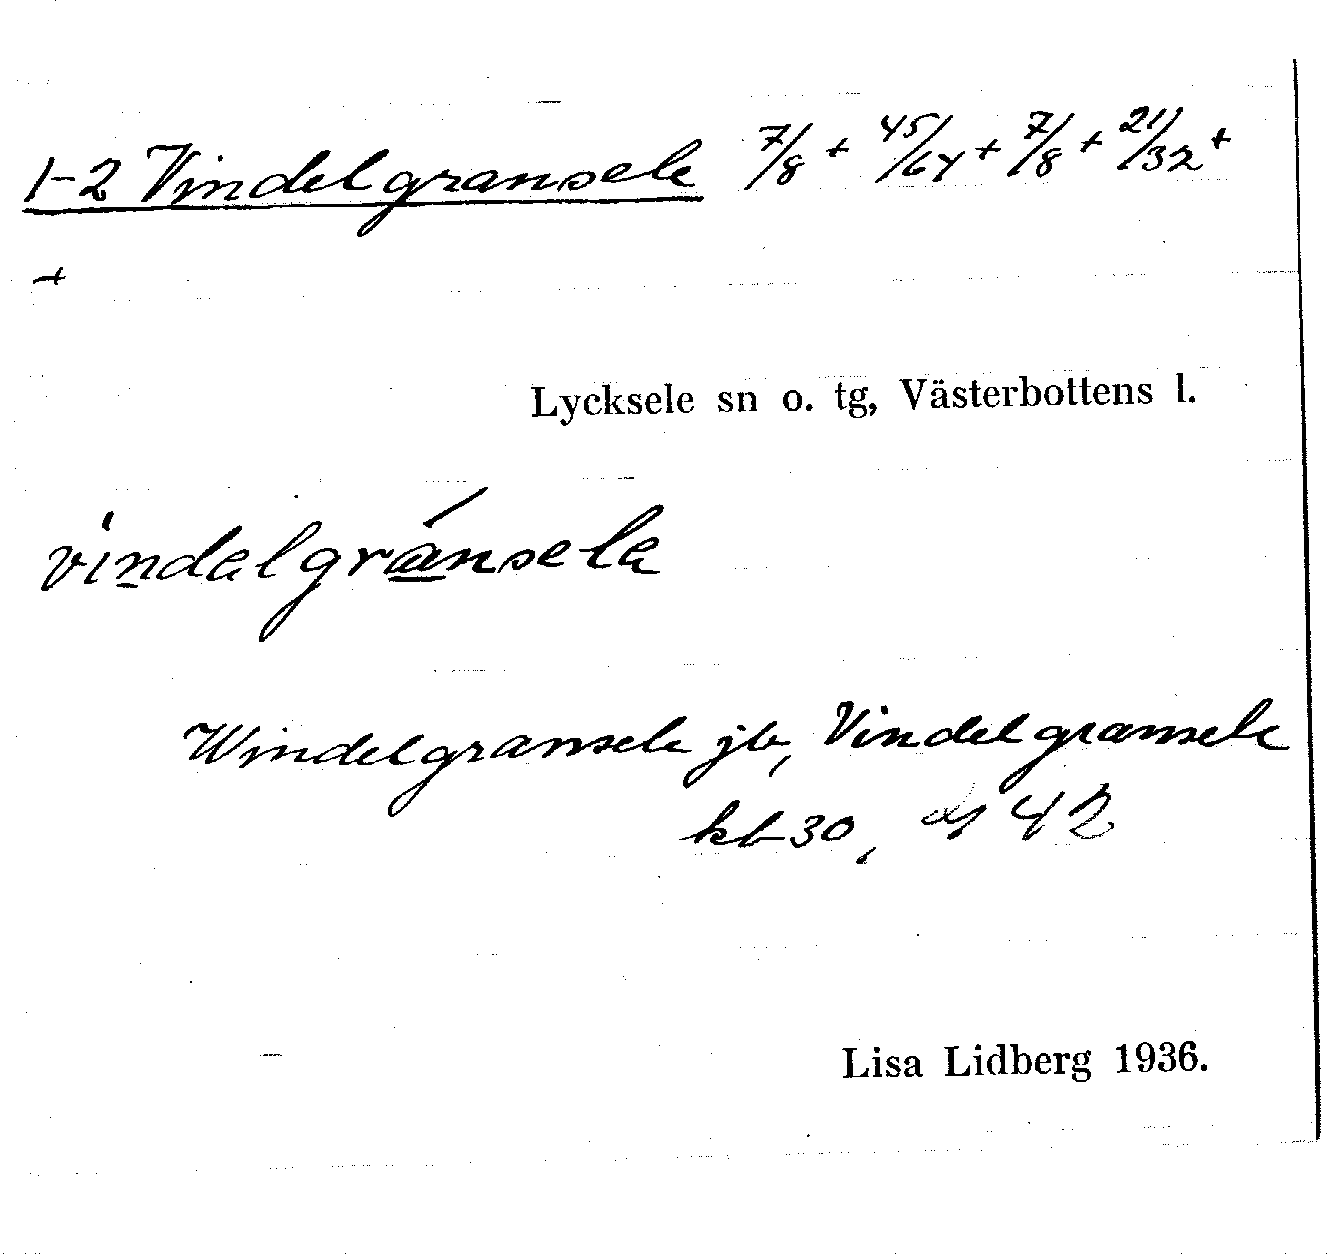 1-2 Vindelgransele 7/8 + 45/64 + 7/8 + 21/32 +
+
Lycksele sn o. tg, Västerbottens l.
vindalgránsela
Windelgransele jb, Vindelgransele
kb 30, 42
Lisa Lidberg 1936.